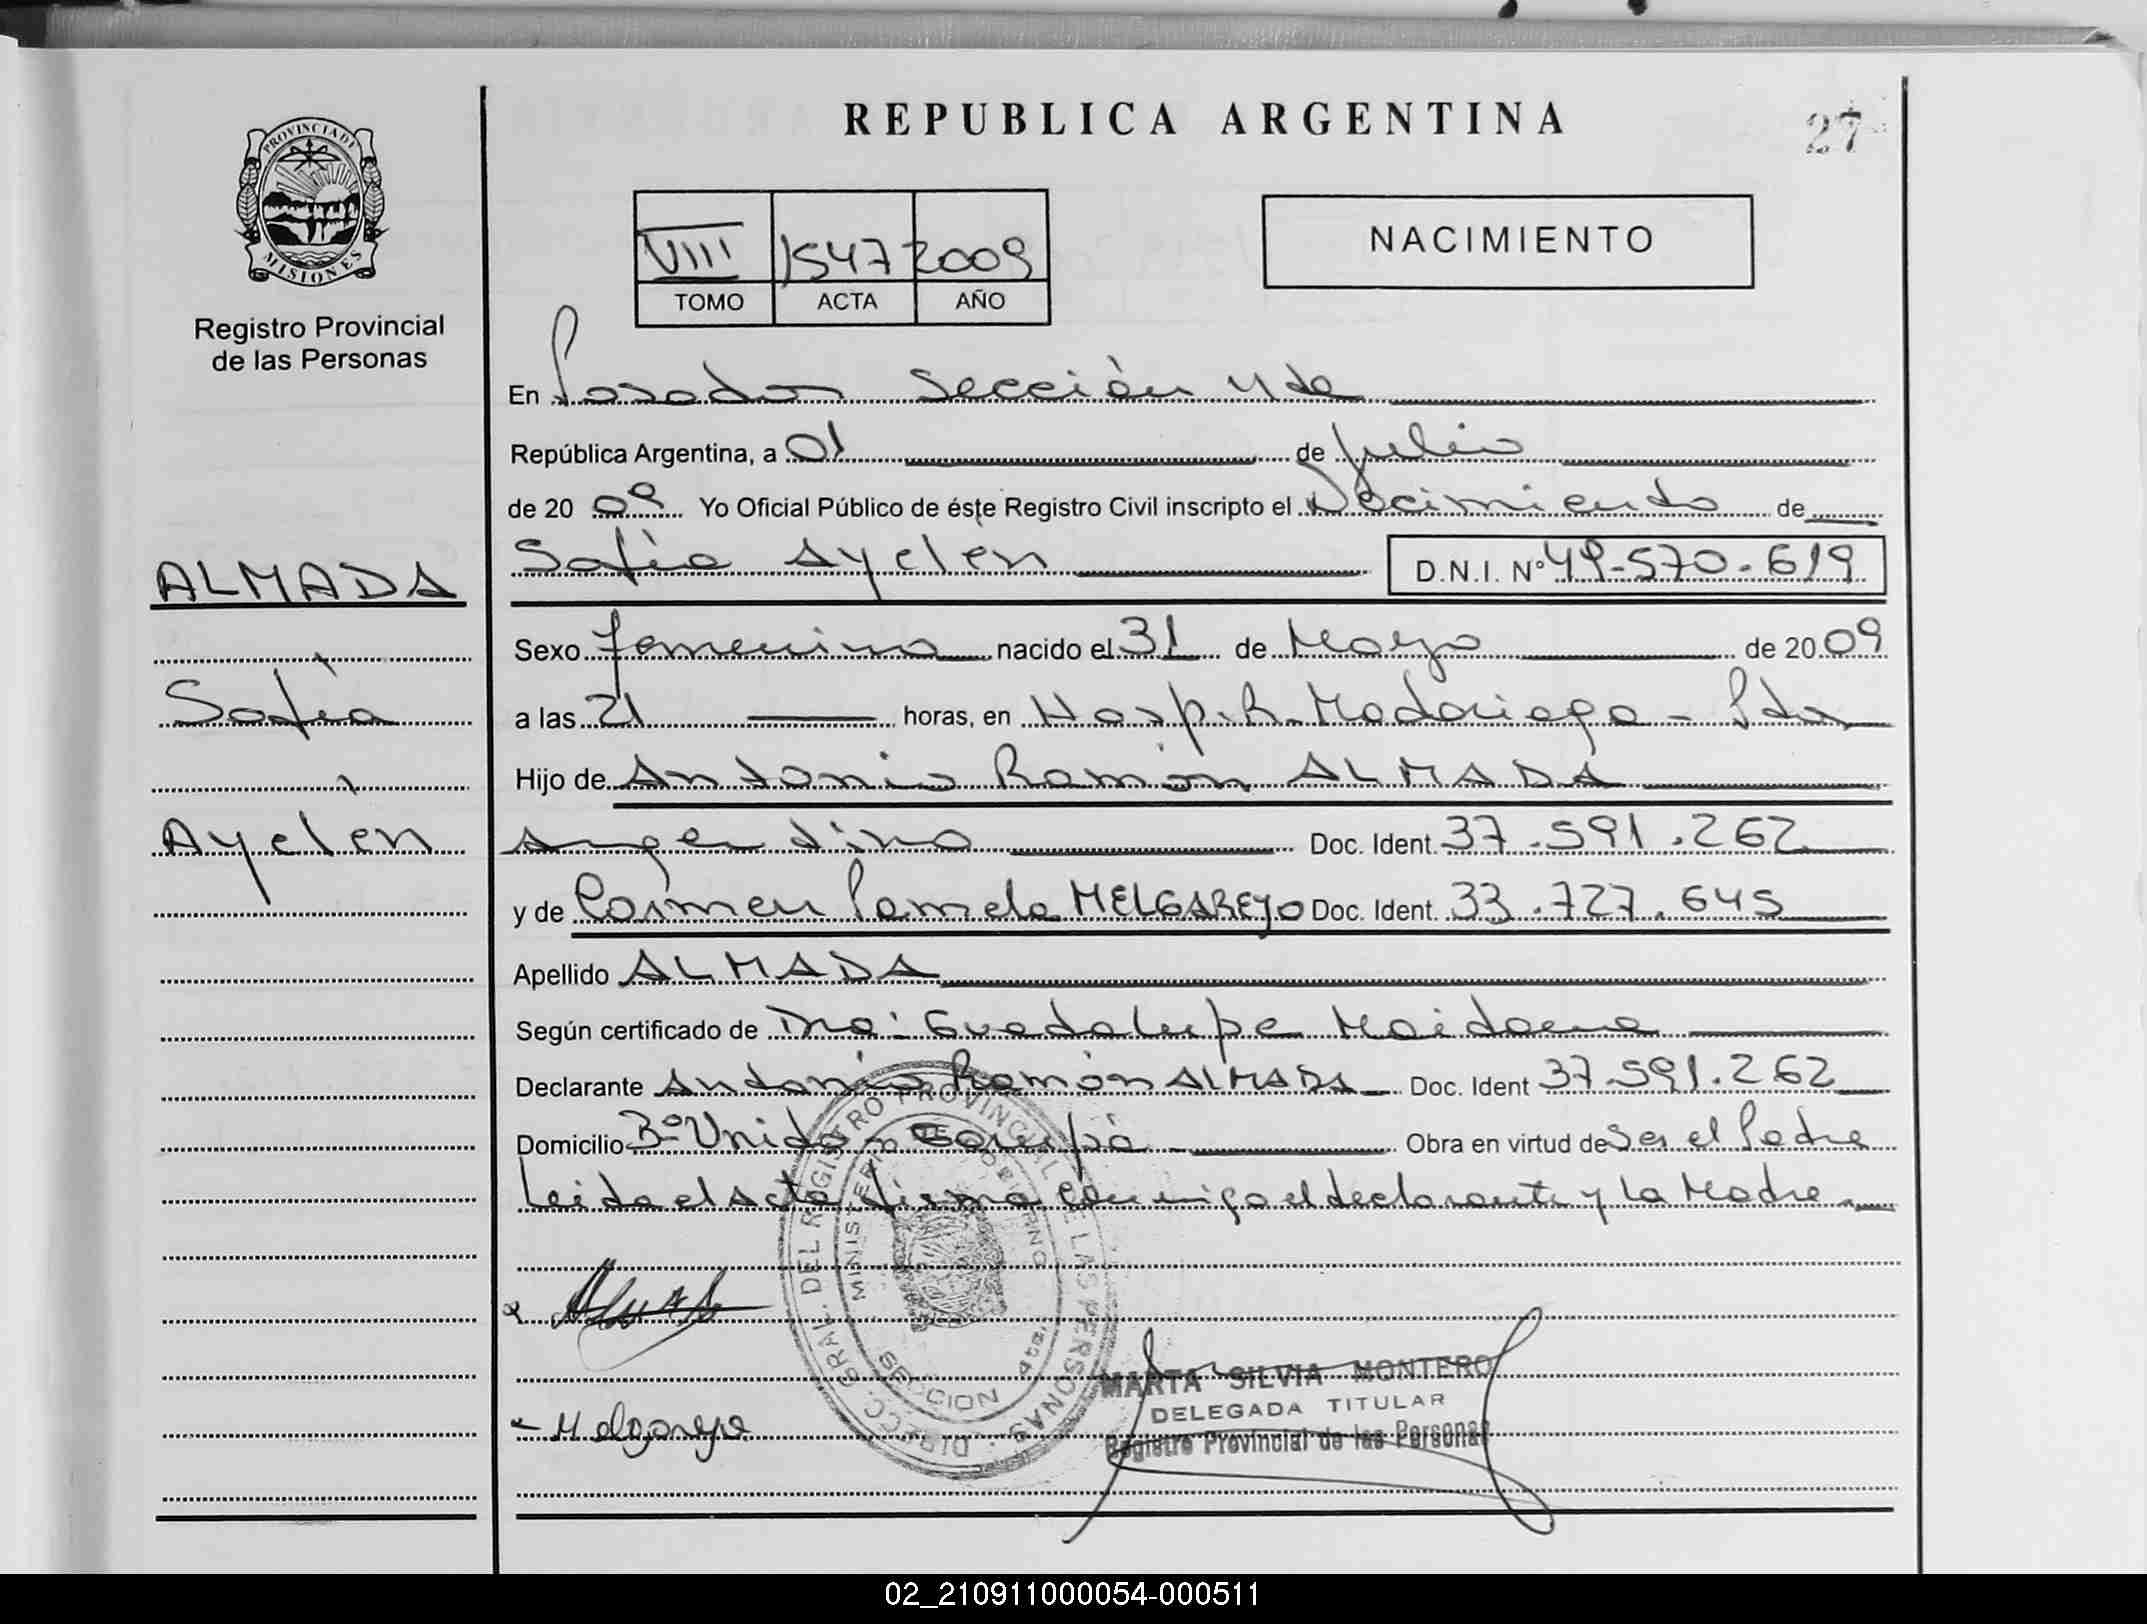 REPUBLICA ARGENTINA
27
PROVINCIA DE
MISIONES
Registro Provincial
de las Personas
VIII 1547 2009
TOMO ACTA AÑO
NACIMIENTO
En Posadas Sección 4ta
República Argentina, a 01 de Julio
de 20 09 Yo Oficial Público de éste Registro Civil inscripto el Nacimiento de
ALMADA
Sofía
Ayelén
Sofía Ayelén D.N.I. Nº 49-570-619
Sexo femenino nacido el 31 de Mayo de 20 09
a las 21 horas, en Hosp. R. Madariaga - Pdas
Hijo de Antonio Ramón ALMADA
Argentino Doc. Ident. 37.591.262
y de Carmen Pamela MELGAREJO Doc. Ident. 33.727.645
Apellido ALMADA
Según certificado de Dra: Guadalupe Maidana
Declarante Antonio Ramón ALMADA Doc. Ident 37.591.262
Domicilio Bº Unido - Garupá Obra en virtud de Ser el Padre
Leida el Acta firma conmigo el declarante y La Madre
DIRECC. GRAL. DEL REGISTRO PROVINCIAL DE LAS PERSONAS
SECCION
Melgarejo
MARTA SILVIA MONTERO
DELEGADA TITULAR
Registro Provincial de las Personas
02_210911000054-000511